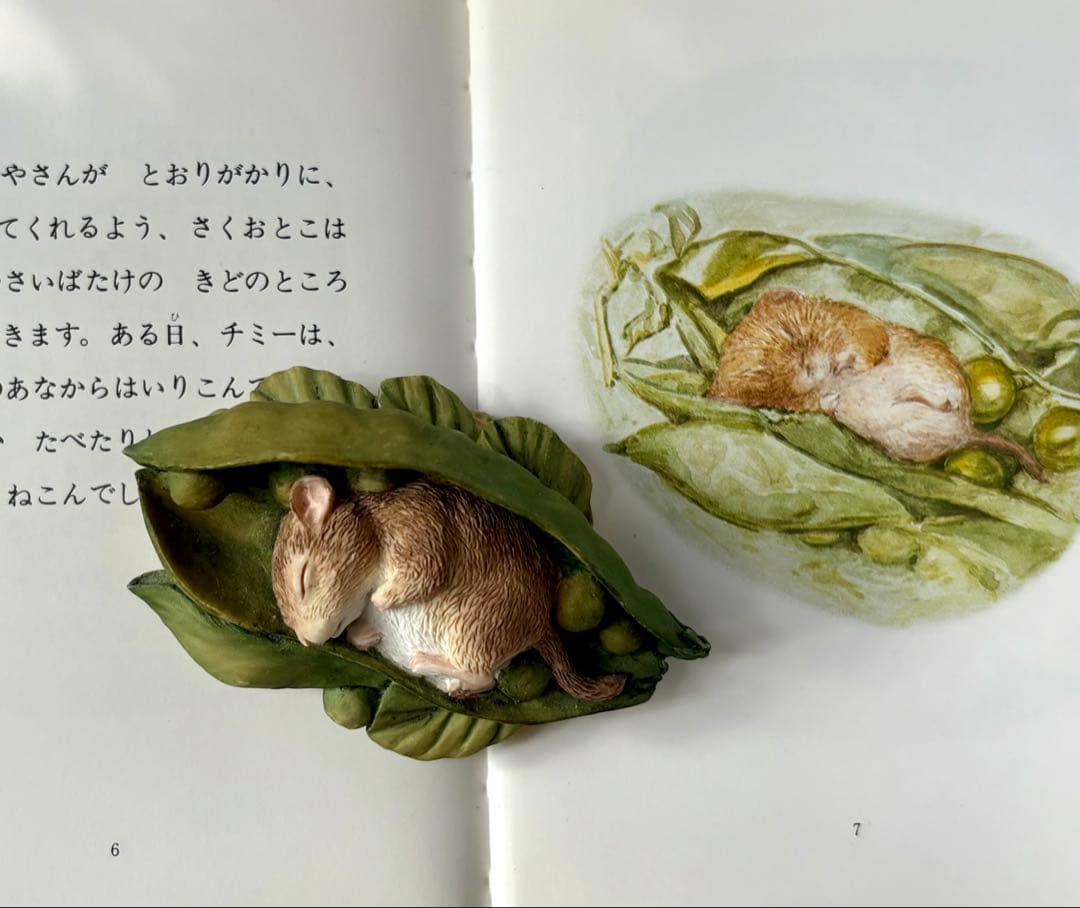 やさんが　とおりがかりに、
てくれるよう、さくおとこは
さいばたけの　きどのところ
きます。ある日、チミーは、
のあなからはいりこんで
たべたり
ねこんでし
6
7